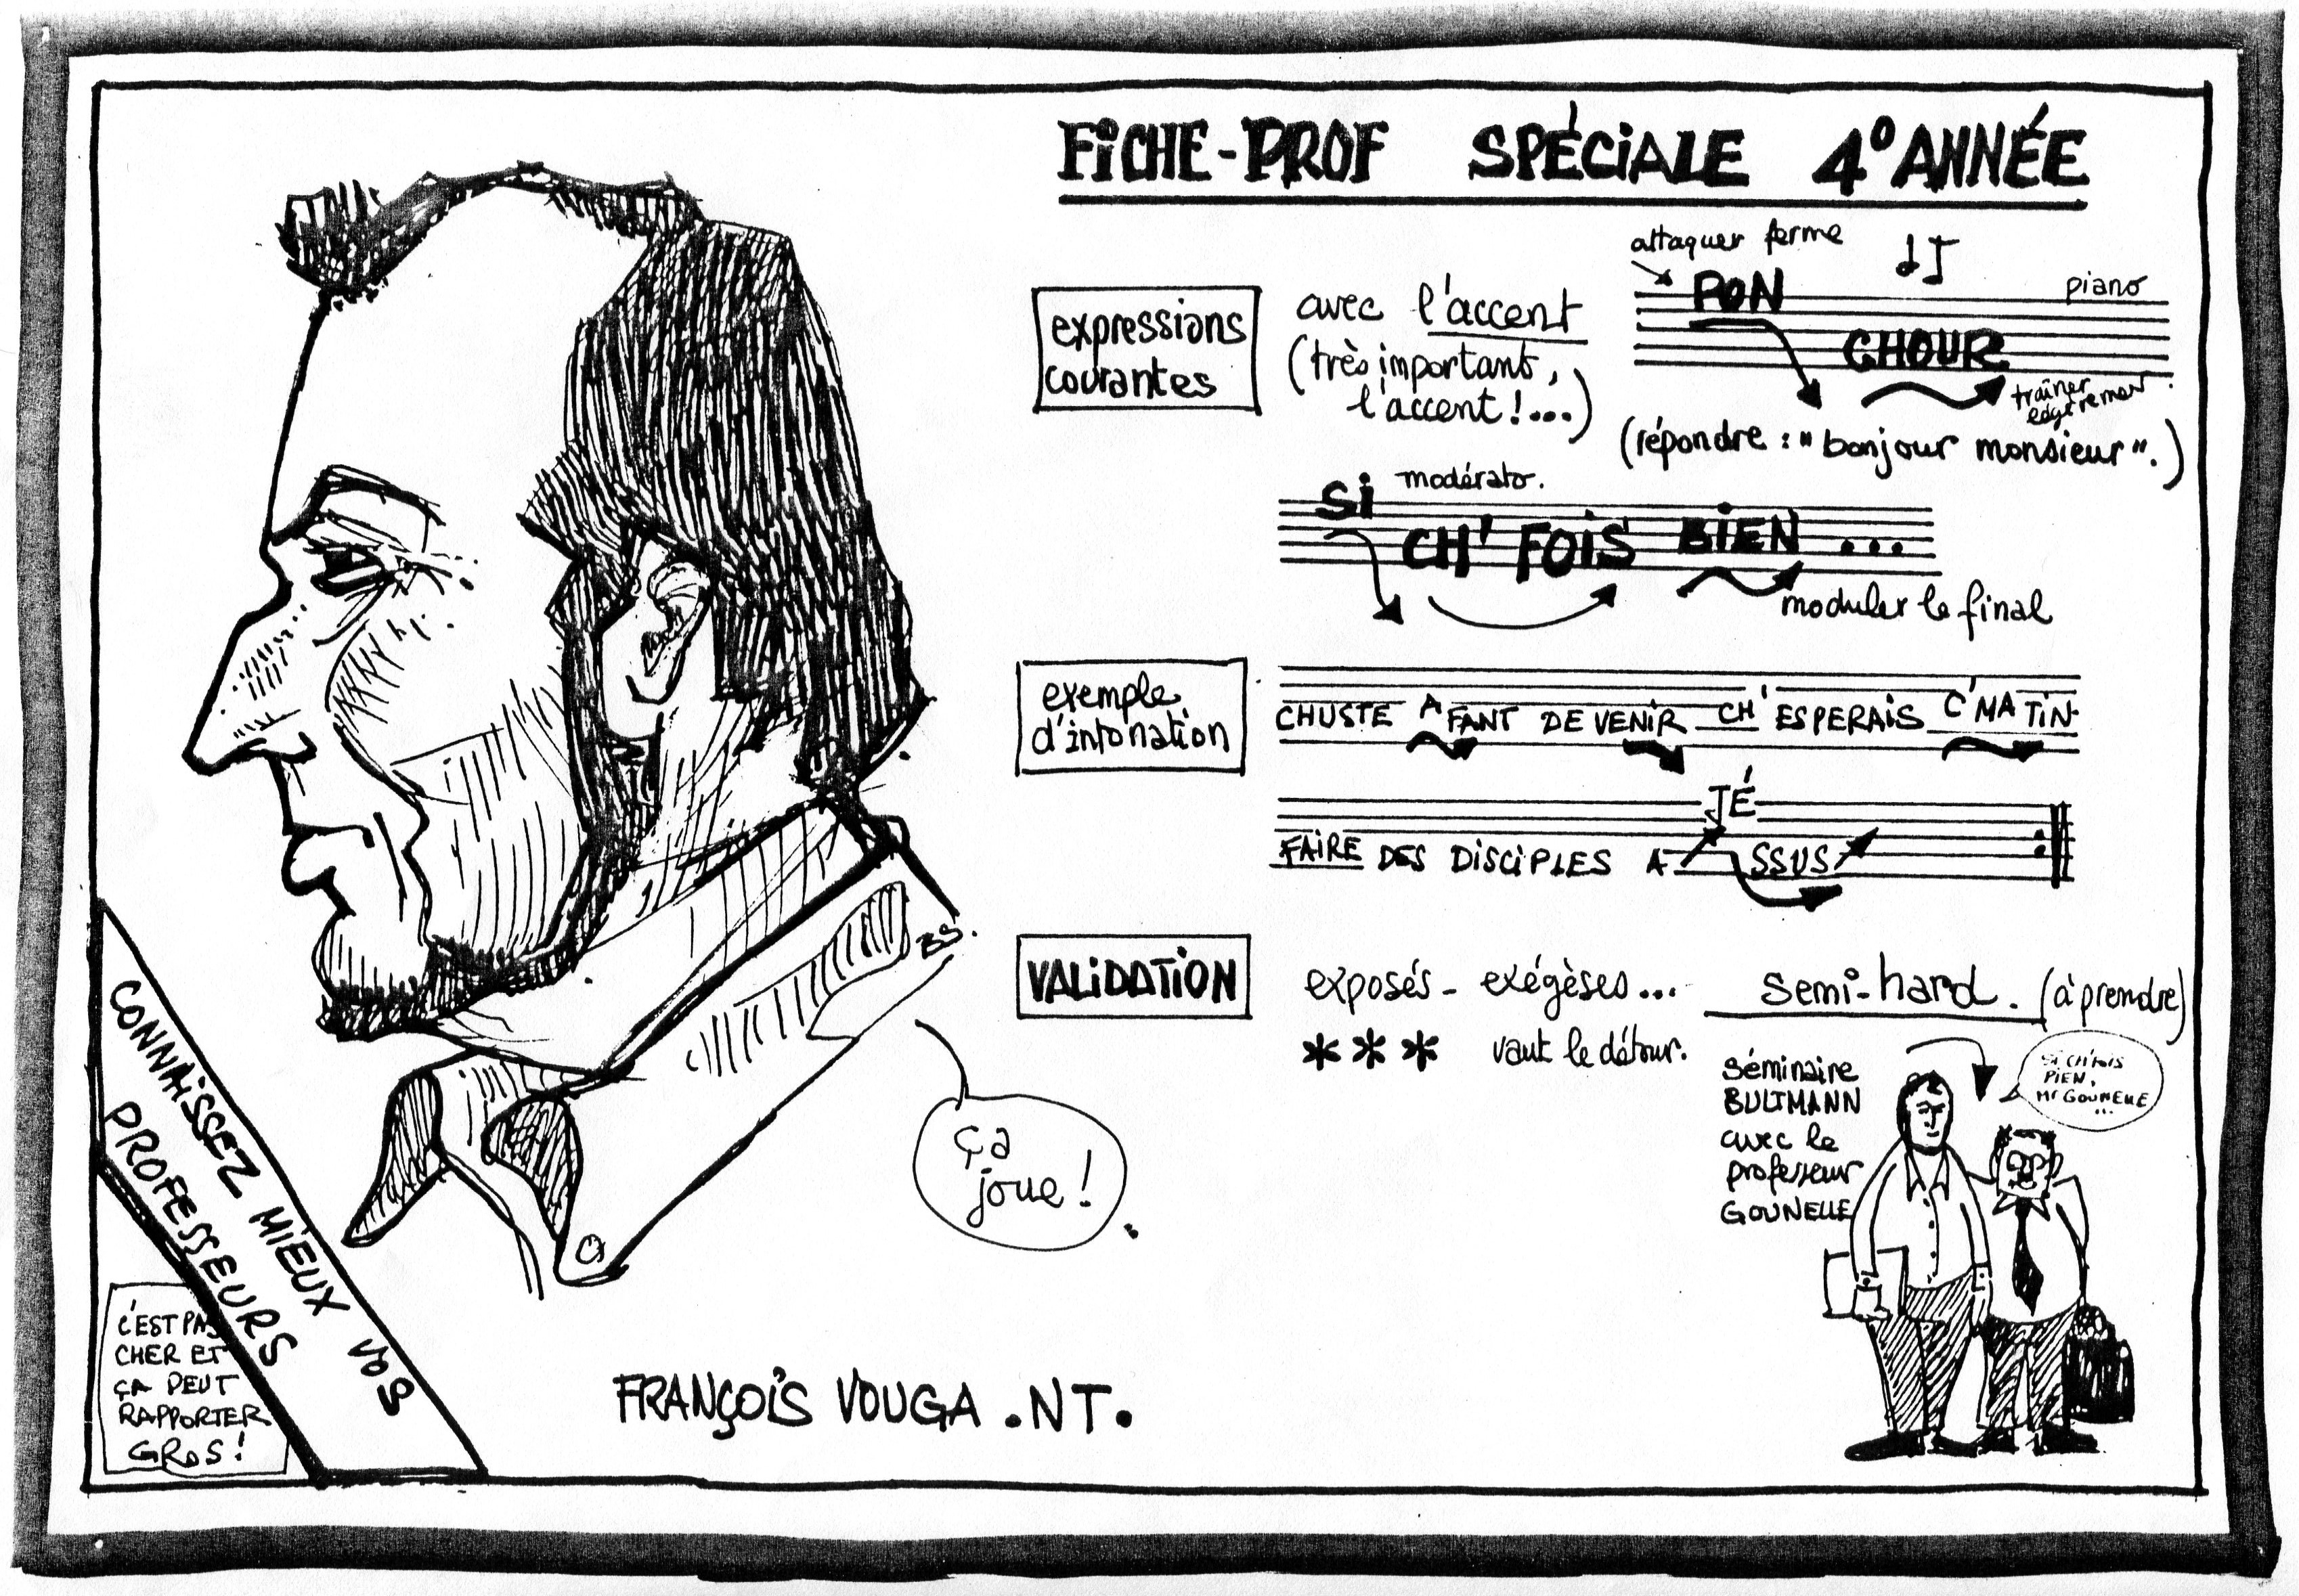 FiCHE-PROF SPÉCiALE 4° ANNÉE
expressions
courantes
avec l'accent
(très important,
l'accent!...)
attaquer ferme
PON
piano
CHOUR
traîner
légèrement
(répondre : "bonjour monsieur".)
modérato.
Si
CH' FOIS BIEN ...
moduler le final
exemple
d'intonation
CHUSTE AFANT DE VENIR CH'ESPERAIS C'MATIN
JÉ
FAIRE DES DISCIPLES A SSUS
VALIDATION
exposés - exégèses...
semi-hard. (à prendre)
*** vaut le détour.
séminaire
BULTMANN
avec le
professeur
GOUNELLE
Si CH'FOIS
PIEN,
Mr GOUNELLE
...
BS.
ça
joue!
CONNAISSEZ MIEUX VOS
PROFESSEURS
C'EST PAS
CHER ET
ÇA PEUT
RAPPORTER
GROS!
FRANÇOIS VOUGA .NT.